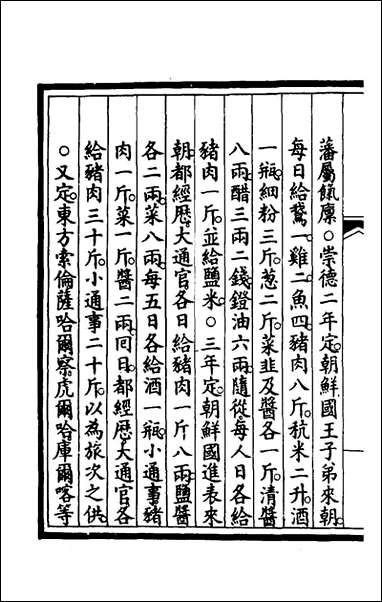 藩屬餼廩○崇德二年定。朝鮮國王子弟來朝。
每日給鵞一。雞二。魚四。豬肉八斤。秔米二升。酒
一瓶。細粉三斤。葱二斤。菜韭及醬各一斤。清醬
八兩。醋三兩二錢。鐙油六兩。隨從每人日各給
豬肉一斤。並給鹽米。○三年定。朝鮮國進表來
朝。都經歷。大通官。各日給豬肉一斤八兩。鹽醬
各二兩。菜八兩。每五日各給酒一瓶。小通事。豬
肉一斤。菜一斤。醬二兩。回日。都經歷。大通官。各
給豬肉三十斤。小通事二十斤。以為旅次之供。
○又定。東方索倫薩哈爾察虎爾哈庫爾喀等